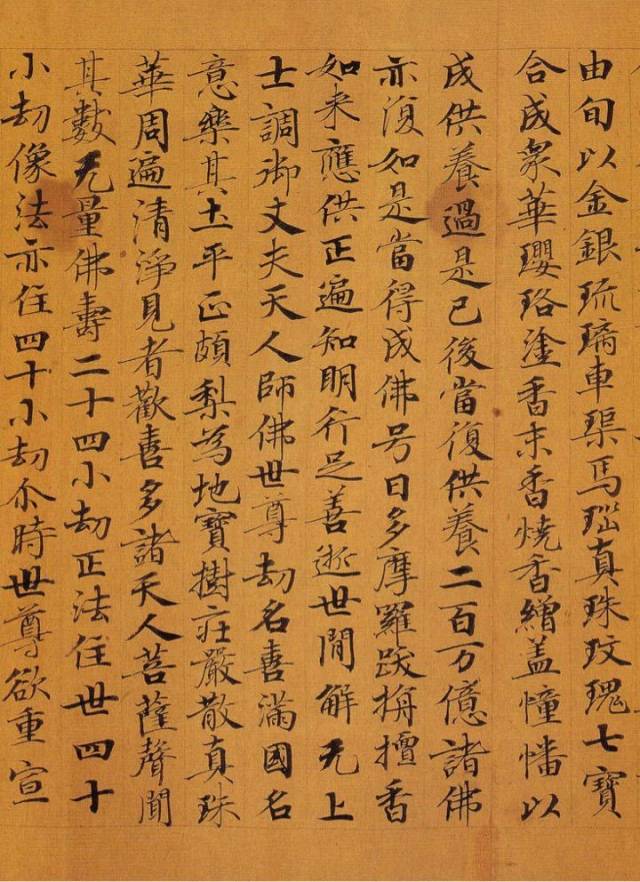 由旬以金銀琉璃車渠馬瑙真珠玟瑰七寶
合成衆華瓔珞塗香末香燒香繒盖幢幡以
成供養過是已後當復供養二百万億諸佛
亦復如是當得成佛号曰多摩羅跋栴檀香
如来應供正遍知明行足善逝世間解无上
士調御丈夫天人師佛世尊劫名喜滿國名
意樂其土平正頗梨為地寶樹莊嚴散真珠
華周遍清淨見者歡喜多諸天人菩薩聲聞
其數无量佛壽二十四小劫正法住世四十
小劫像法亦住四十小劫尒時世尊欲重宣